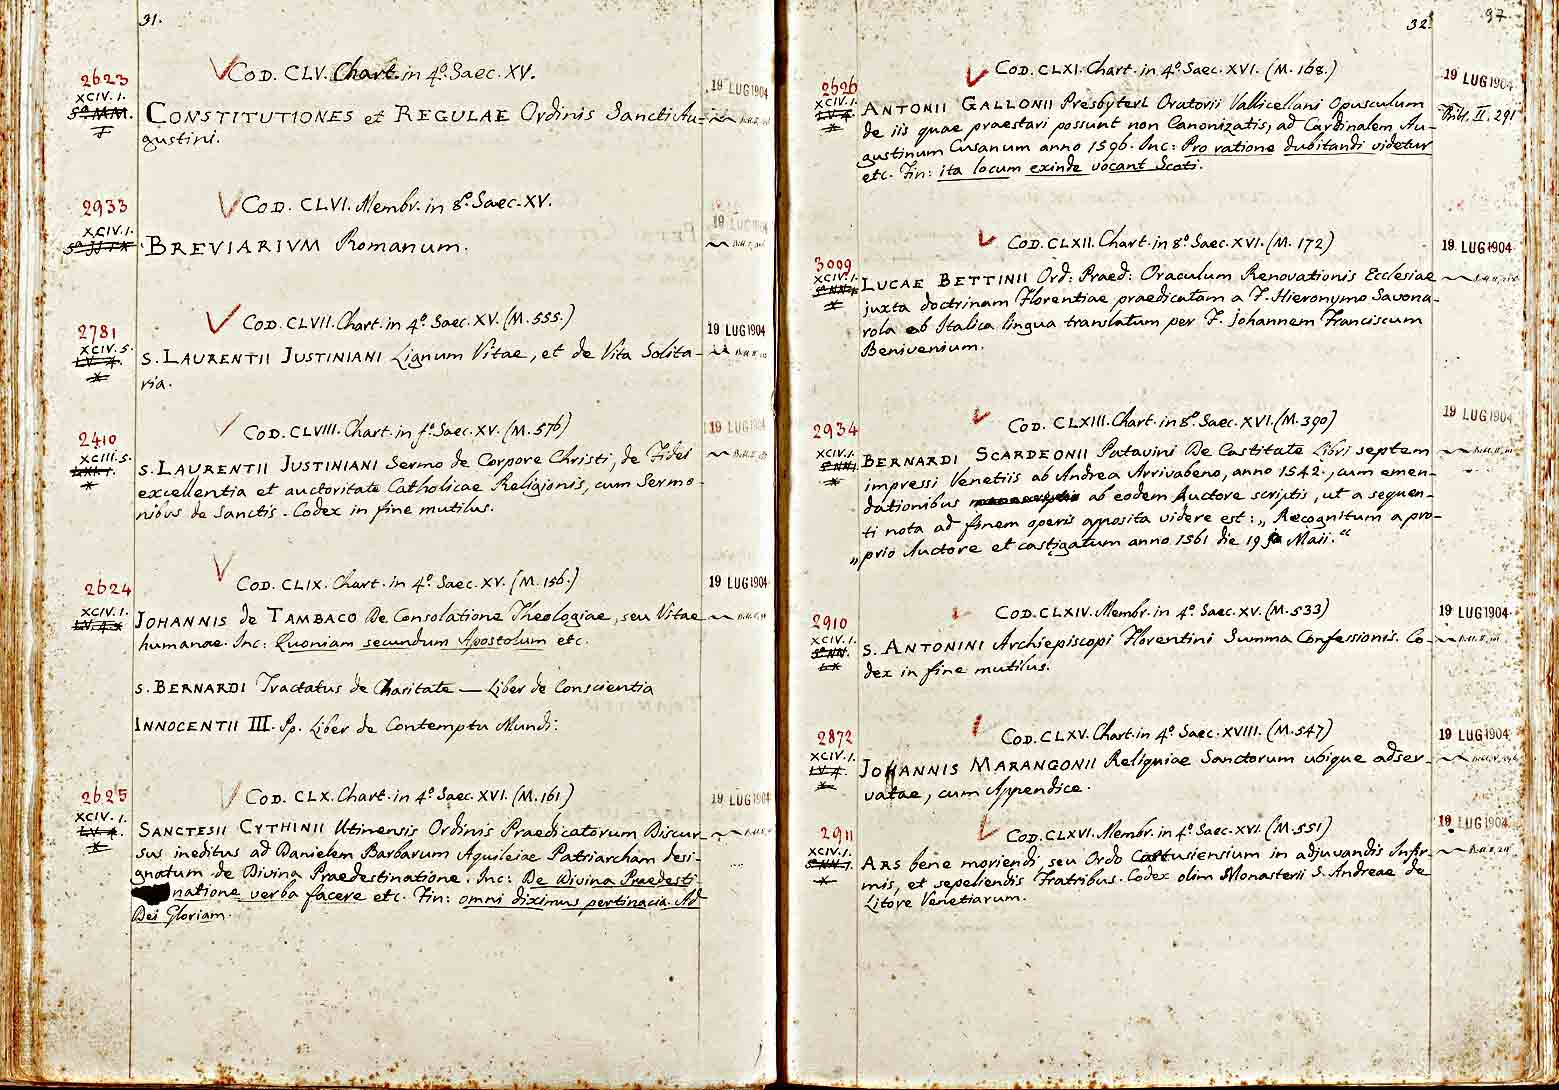 31.
2623
XCIV. 1.
COD. CLV. Chart. in 4º. Saec. XV.
19 LUG 1904
CONSTITUTIONES et REGULAE Ordinis Sancti Au-
gustini.
2933
XCIV. 1.
COD. CLVI. Membr. in 8º. Saec. XV.
19 LUG 1904
BREVIARIVM Romanum.
2781
XCIV. 5.
COD. CLVII. Chart. in 4º. Saec. XV. (M. 555.)
19 LUG 1904
S. LAURENTII JUSTINIANI Lignum Vitae, et de Vita Solita-
ria.
2410
XCIII. 5.
COD. CLVIII. Chart. in fº. Saec. XV. (M. 576)
19 LUG 1904
S. LAURENTII JUSTINIANI Sermo de Corpore Christi, de Fidei
excellentia et auctoritate Catholicae Religionis, cum Sermo-
nibus de Sanctis. Codex in fine mutilus.
2624
XCIV. 1.
COD. CLIX. Chart. in 4º. Saec. XV. (M. 156.)
19 LUG 1904
JOHANNIS de TAMBACO De Consolatione Theologiae, seu Vitae
humanae. Inc: Quoniam secundum Apostolum etc.
S. BERNARDI Tractatus de Charitate — Liber de Conscientia
INNOCENTII III. Pp. Liber de Contemptu Mundi:
2625
XCIV. 1.
COD. CLX. Chart. in 4º. Saec. XVI. (M. 161)
19 LUG 1904
SANCTESII CYTHINII Utinensis Ordinis Praedicatorum Discur-
sus ineditus ad Danielem Barbarum Aquileiae Patriarcham desi-
gnatum de Divina Praedestinatione. Inc: De Divina Praedesti
natione verba facere etc. Fin: omni diximus pertinacia. Ad
Dei Gloriam.
32.
97
2626
XCIV. 1.
COD. CLXI. Chart. in 4º. Saec. XVI. (M. 168.)
19 LUG 1904
Bibl. II. 291
ANTONII GALLONII Presbyteri Oratorii Vallicellani Opusculum
de iis quae praestari possunt non Canonizatis, ad Cardinalem Au-
gustinum Cusanum anno 1596. Inc: Pro ratione dubitandi videtur
etc. Fin: ita locum exinde vocant Scoti.
3009
XCIV. 1.
COD. CLXII. Chart. in 8º. Saec. XVI. (M. 172)
19 LUG 1904
LUCAE BETTINII Ord: Praed: Oraculum Renovationis Ecclesiae
juxta doctrinam Florentiae praedicatam a F. Hieronymo Savona-
rola ab Italica lingua translatum per F. Johannem Franciscum
Benivenium.
2934
XCIV. 1.
COD. CLXIII. Chart. in 8º. Saec. XVI. (M. 390)
19 LUG 1904
BERNARDI SCARDEONII Patavini De Castitate Libri septem
impressi Venetiis ab Andrea Arrivabeno, anno 1542., cum emen-
dationibus ab eodem Auctore scriptis, ut a sequen-
ti nota ad finem operis apposita videre est: „ Recognitum a pro-
„ prio Auctore et castigatum anno 1561 die 19 Maii. “
2910
XCIV. 1.
COD. CLXIV. Membr. in 4º. Saec. XV. (M. 533)
19 LUG 1904
S. ANTONINI Archiepiscopi Florentini Summa Confessionis. Co-
dex in fine mutilus.
2872
XCIV. 1.
COD. CLXV. Chart. in 4º. Saec. XVIII. (M. 547)
19 LUG 1904
JOHANNIS MARANGONII Reliquiae Sanctorum ubique adser-
vatae, cum Appendice.
2911
XCIV. 1.
COD. CLXVI. Membr. in 4º. Saec. XVI. (M. 551)
19 LUG 1904
ARS bene moriendi, seu Ordo Cartusiensium in adjuvandis Infir-
mis, et sepeliendis Fratribus. Codex olim Monasterii S. Andreae de
Litore Venetiarum.